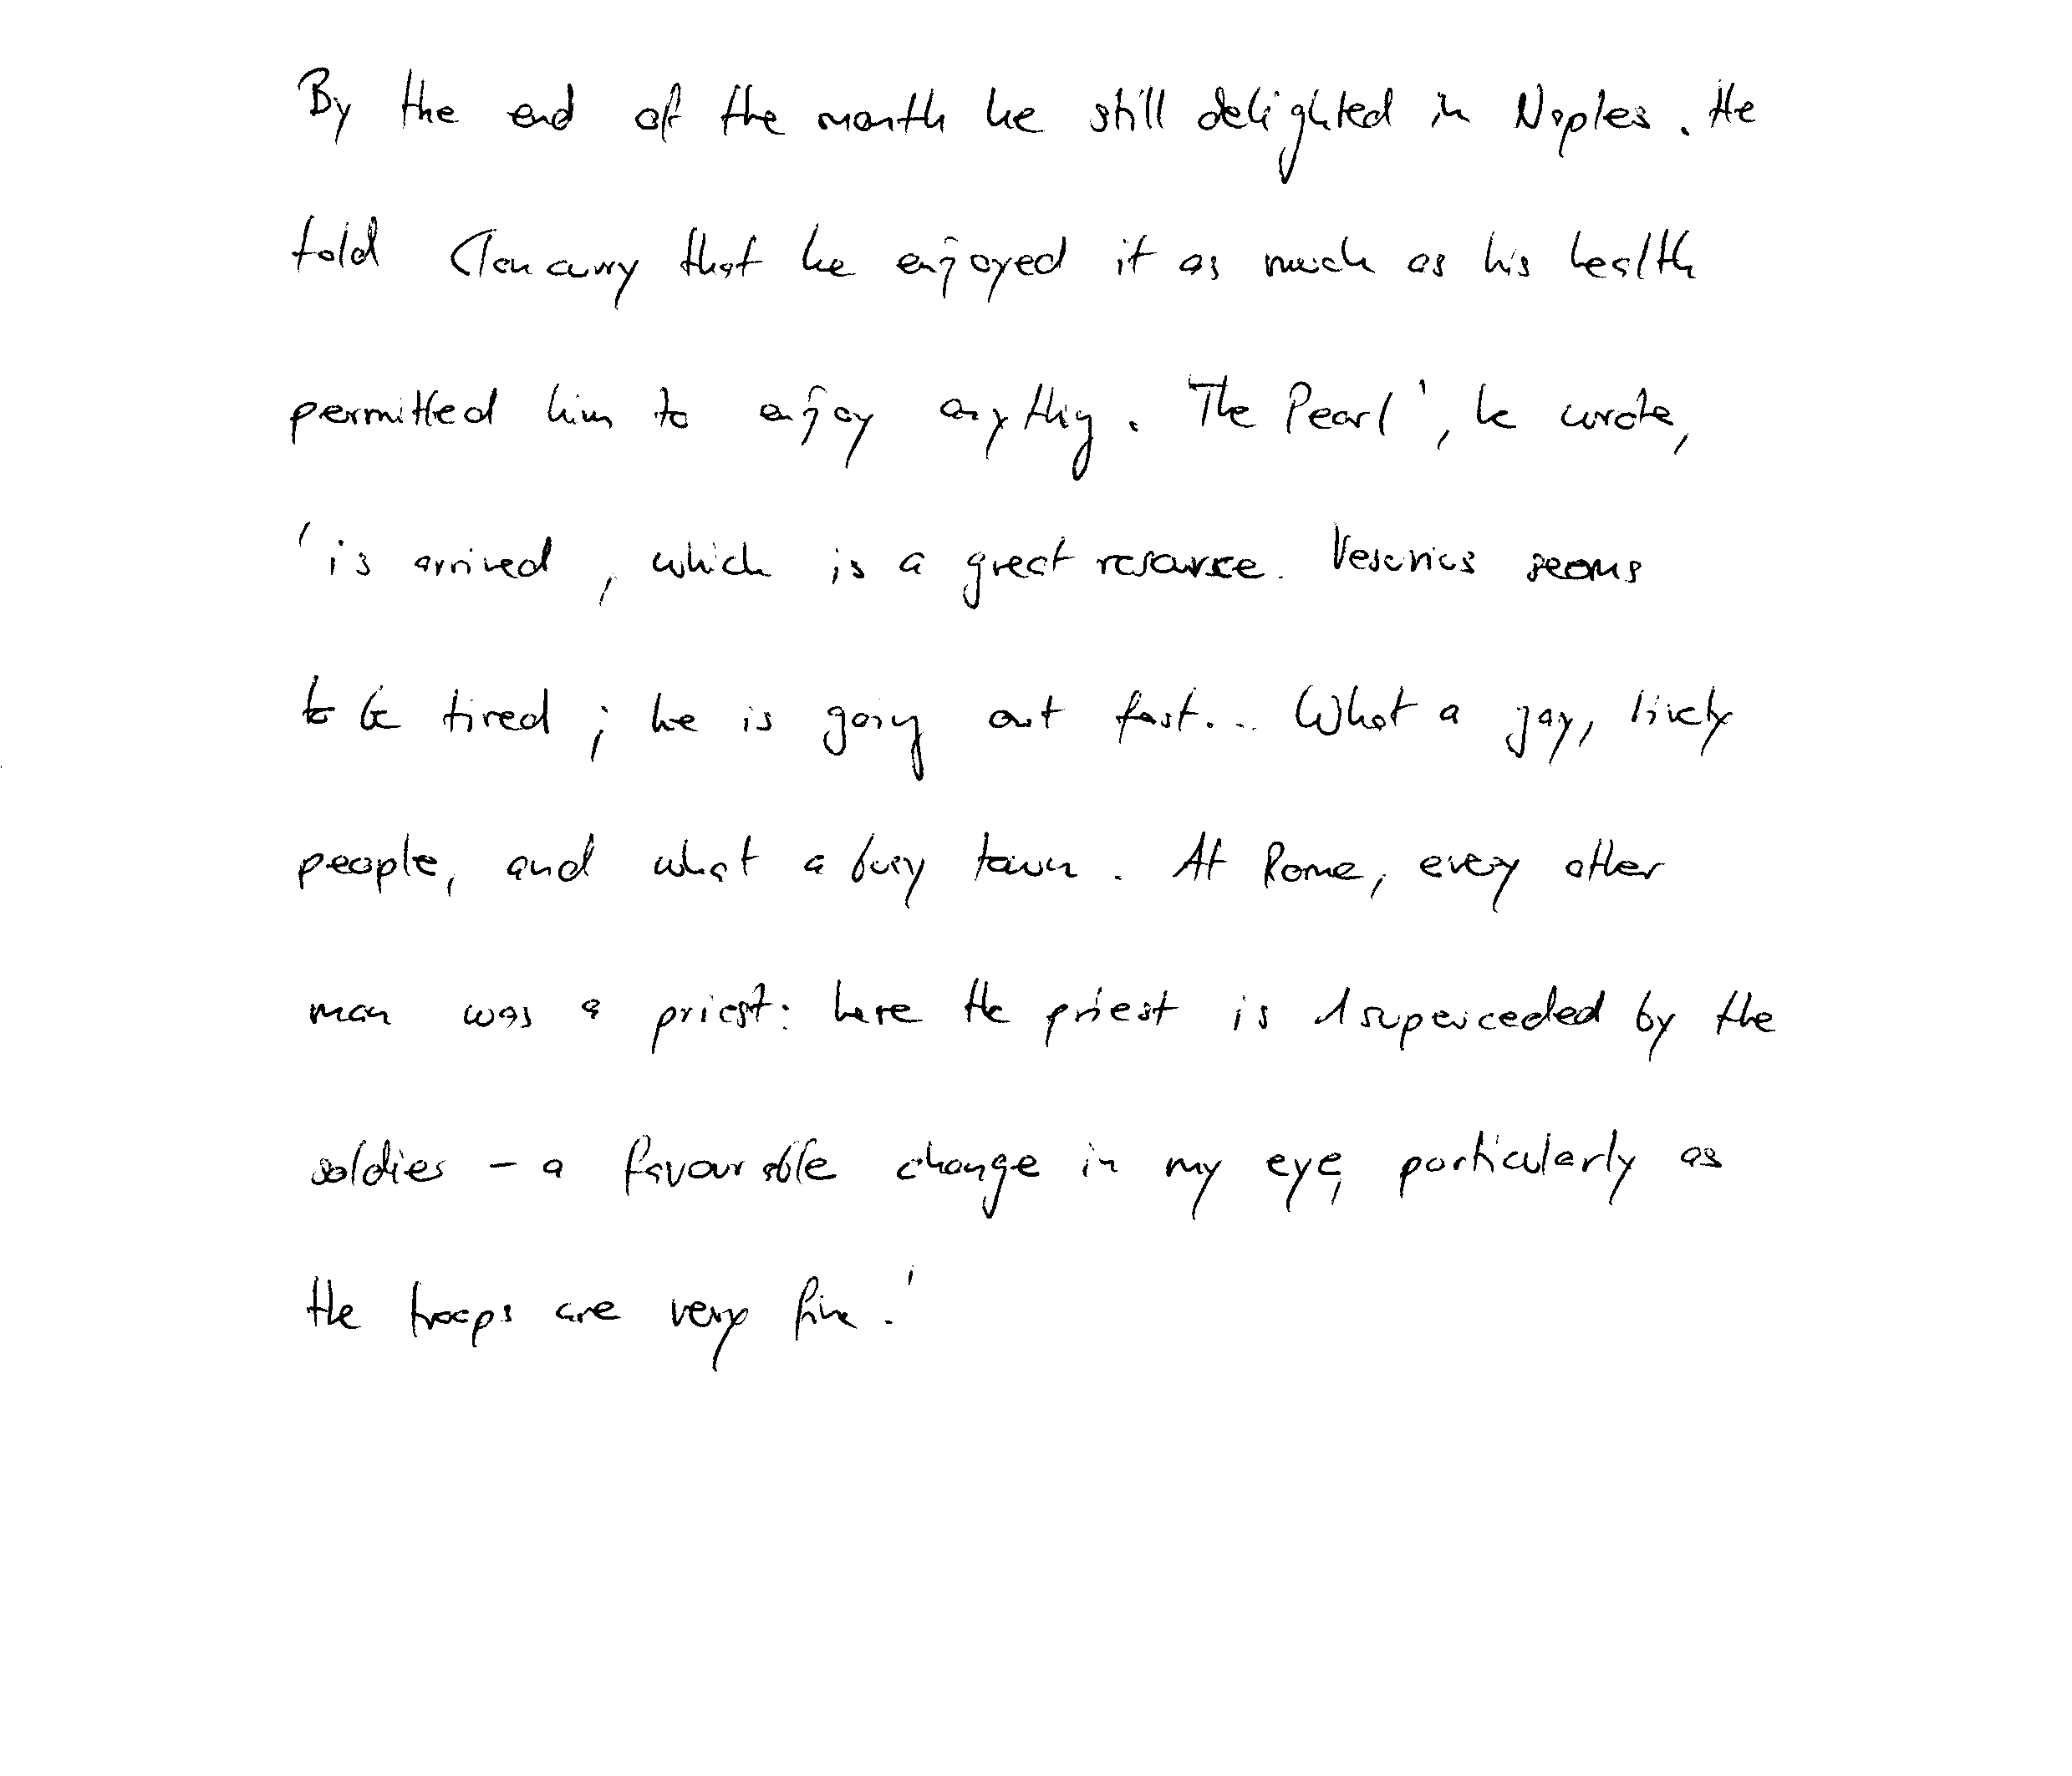 By the end of the month he still delighted in Naples. He
told Clancurry that he enjoyed it as much as his health
permitted him to enjoy anything. 'The Pearl', he wrote,
'is arrived, which is a great resource. Vesuvius seems
to be tired; he is going out fast... What a gay, lively
people, and what a busy town. At Rome, every other
man was a priest: here the priest is superceded by the
soldier - a favourable change in my eye, particularly as
the troops are very fine.'